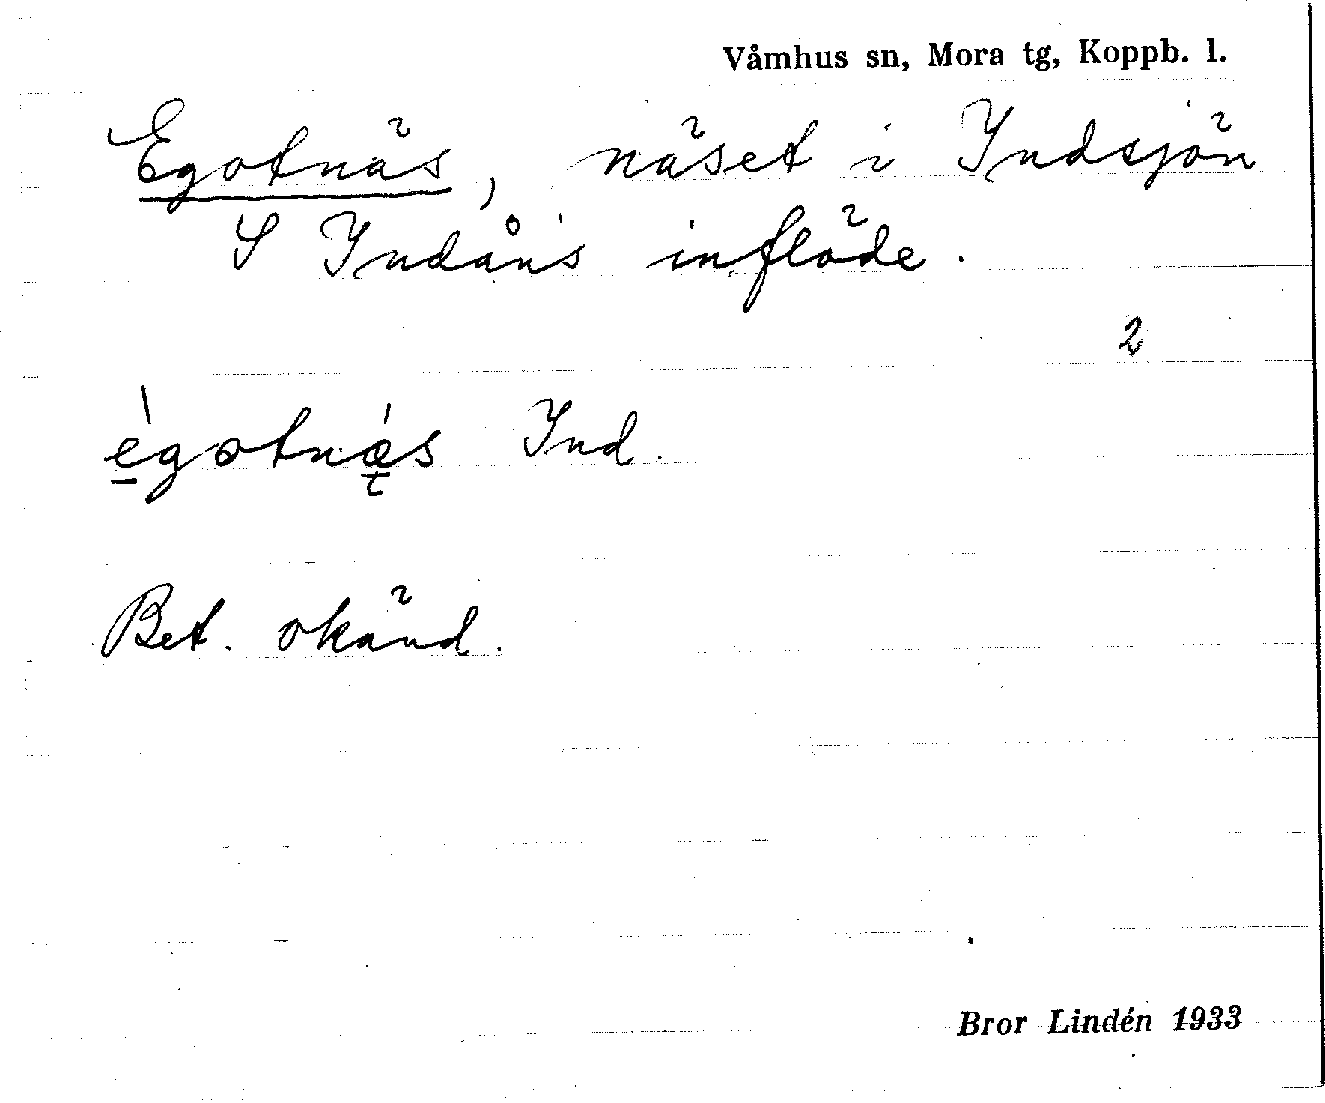 Våmhus sn, Mora tg, Koppb. l.
Egotnäs, näset i Indsjön
S Indåns inflöde.
2
ègotnǽs Ind.
Bet. okänd.
Bror Lindén 1933